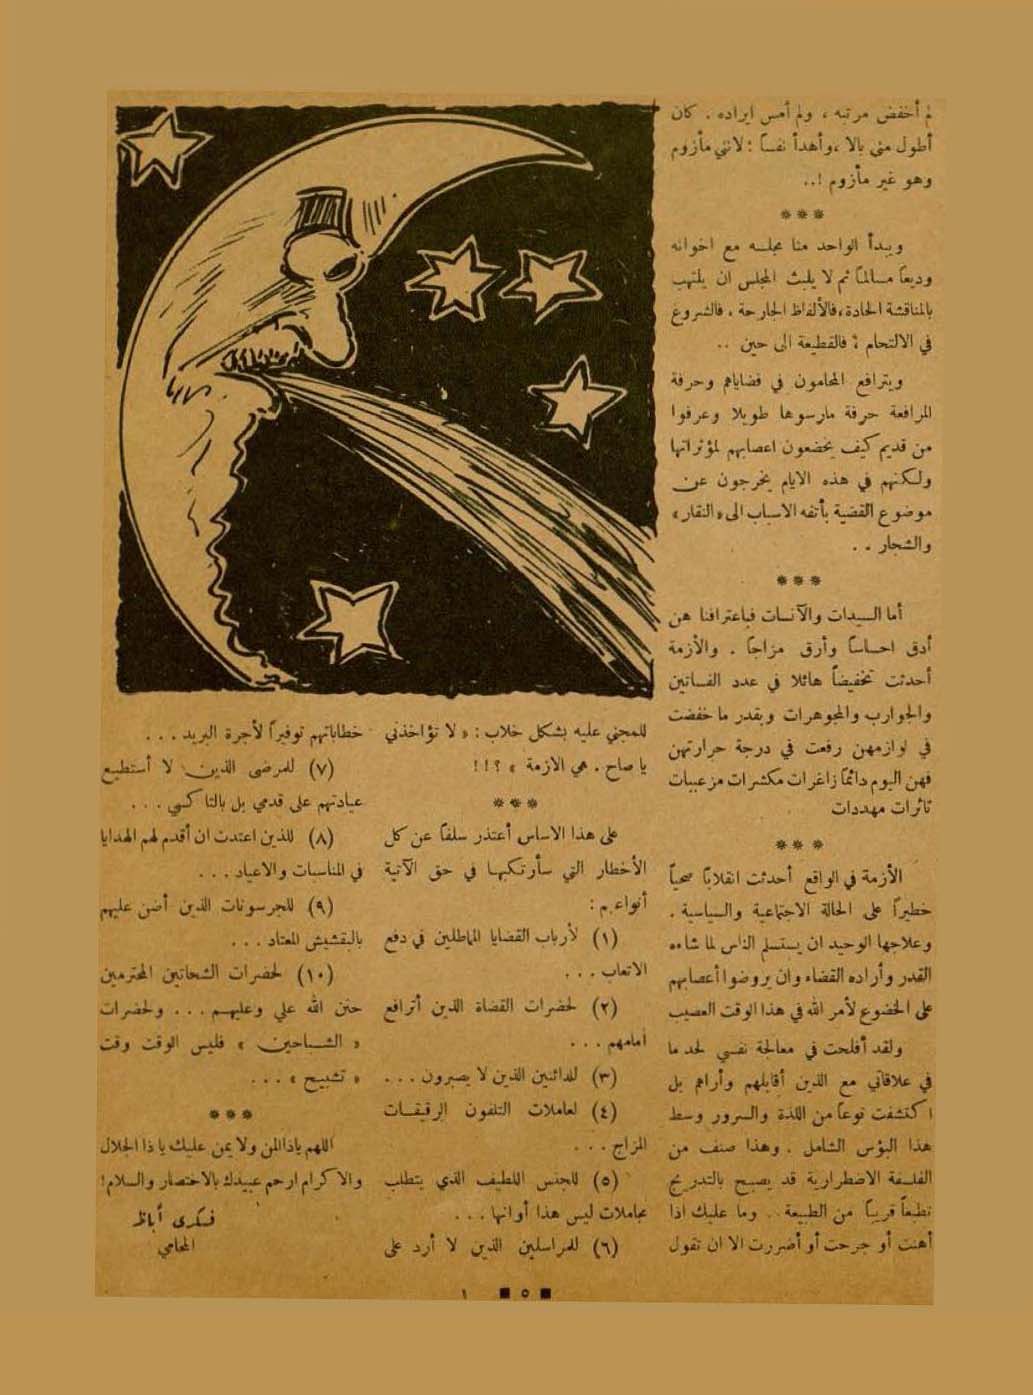 لم أخفض مرتبه ، ولم أمس ايراده . كان
أطول مني بالا ، وأهدأ نفساً : لانني مأزوم
وهو غير مأزوم ! ..
***
ويبدأ الواحد منا مجلسه مع اخوانه
وديعاً مسالماً ثم لا يلبث المجلس ان يلتهب
بالمناقشة الحادة ، فالألفاظ الجارحة ، فالشروع
في الالتحام ؛ فالقطيعة الى حين ..
ويترافع المحامون في قضاياهم وحرفة
المرافعة حرفة مارسوها طويلا وعرفوا
من قديم كيف يخضعون اعصابهم لمؤثراتها
ولكنهم في هذه الايام يخرجون عن
موضوع القضية بأتفه الاسباب الى « النقار »
والشجار . .
***
أما السيدات والآنسات فباعترافنا هن
أدق احساساً وأرق مزاجاً . والأزمة
أحدثت تخفيضاً هائلا في عدد الفساتين
والجوارب والمجوهرات وبقدر ما خفضت
في لوازمهن رفعت في درجة حرارتهن
فهن اليوم دائماً زاغرات مكشرات مزعببات
ثائرات مهددات
***
الأزمة في الواقع أحدثت انقلاباً صحياً
خطيراً على الحالة الاجتماعية والسياسية .
وعلاجها الوحيد ان يستسلم الناس لما شاءه
القدر وأراده القضاء وان يروضوا أعصابهم
على الخضوع لأمر الله في هذا الوقت العصيب
ولقد أفلحت في معالجة نفسي لحد ما
في علاقاتي مع الذين أقابلهم وأراهم بل
اكتشفت نوعاً من اللذة والسرور وسط
هذا البؤس الشامل . وهذا صنف من
الفلسفة الاضطرارية قد يصبح بالتدريج
تطبعاً قريباً من الطبيعة .. وما عليك اذا
أهنت أو جرحت أو أضررت الا ان تقول
للمجني عليه بشكل خلاب : « لا تؤاخذني
يا صاح . هي الازمة » ؟ ! ! !
***
على هذا الاساس أعتذر سلفاً عن كل
الأخطار التي سأرتكبها في حق الآتية
أنواعهم :
(١) لأرباب القضايا المماطلين في دفع
الاتعاب . . .
(٢) لحضرات القضاة الذين أترافع
أمامهم . . .
(٣) للدائنين الذين لا يصبرون . . .
(٤) لعاملات التلفون الرقيقات
المزاج . . .
(٥) للجنس اللطيف الذي يتطلب
مجاملات ليس هذا أوانها . . .
(٦) للمراسلين الذين لا أرد على
خطاباتهم توفيراً لأجرة البريد . . .
(٧) للمرضى الذين لا أستطيع
عيادتهم على قدمي بل بالتاكسي . . .
(٨) للذين اعتدت ان أقدم لهم الهدايا
في المناسبات والاعياد . . .
(٩) للجرسونات الذين أضن عليهم
بالبقشيش المعتاد . . .
(١٠) لحضرات الشحاتين المحترمين
حنن الله علي وعليهم . . . ولحضرات
« الشباحين » فليس الوقت وقت
« تشبيح » . . .
***
اللهم ياذا المن ولا يمن عليك يا ذا الجلال
والاكرام ارحم عبيدك بالاختصار والسلام !
فكرى أباظه
المحامي
■ ٥ ■ ١